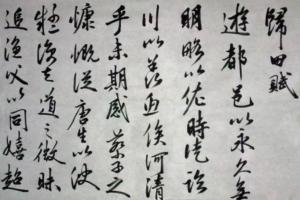 歸田賦
遊都邑以永久無
明畧以佐時徒臨
川以羨魚俟河清
乎未期感蔡子之
慷慨從唐生以決
疑諒天道之微昧
追漁父以同嬉超